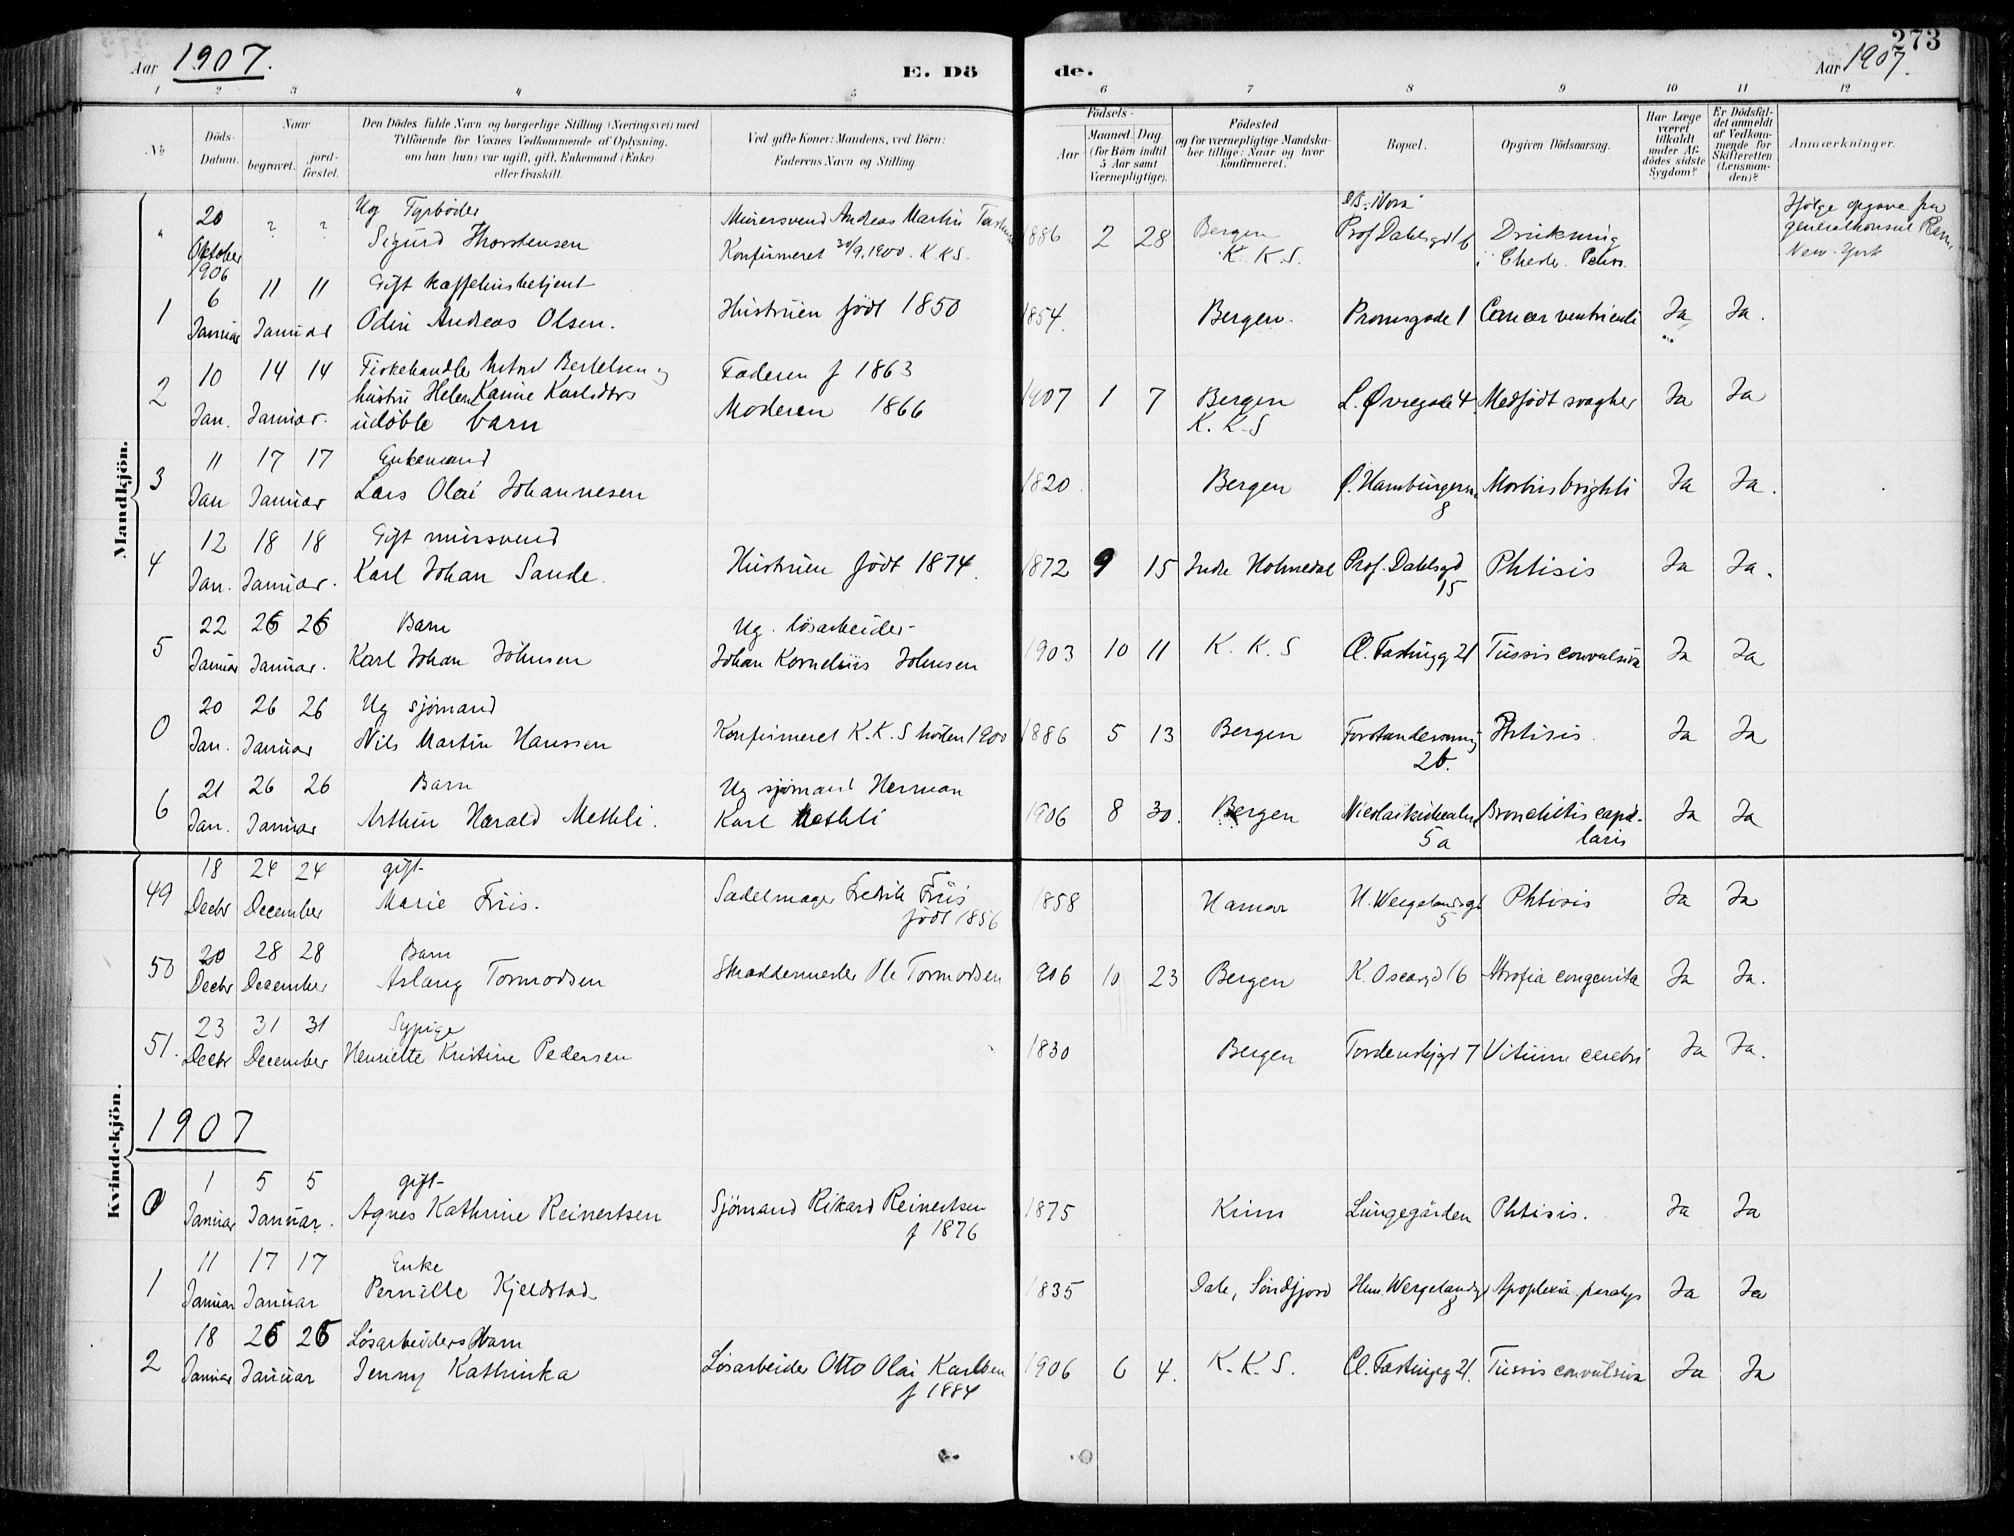 273
Aar 1907.
E. Döde.
Aar 1907.
1 2 3 4 5 6 7 8 9 10 11 12
No
Döds-Datum.
Naar
begravet.
jord-fæstet.
Den Dödes fulde Navn og borgerlige Stilling (Næringsvei) med
Tilföiende for Voxnes Vedkommende af Oplysning,
om han (hun) var ugift, gift, Enkemand (Enke)
eller fraskilt.
Ved gifte Koner: Mandens, ved Börn:
Faderens Navn og Stilling.
Födsels-
Aar
Maaned. Dag.
(for Börn indtil
5 Aar samt
Værnepligtige).
Födested
og for værnepligtige Mandska-
ber tillige: Naar og hvor
konfirmeret.
Bopæl.
Opgiven Dödsaarsag.
Har Læge
været
tilkaldt
under Af-
dödes sidste
Sygdom?
Er Dödsfal-
det anmeldt
af Vedkom-
mende for
Skifteretten
(Lensman-
den)?
Anmærkninger.
Mandkjön.
20 ? ? Ug Fyrböder
Oktober 1906 Sigurd Thorstensen
Murersvend Andreas Martin
Konfirmeret 30/9 1900. K.K.S.
1886 2 28 Bergen K.K.S. Prof Dahlsgd 16 Drukning
Ifølge opgave fra
generalkonsul
New-York
1 6 11 11 Gift kaffehusbetjent
Januar Januar Odin Andreas Olsen. Hustruen født 1850 1854. Bergen. Promsgade 1 Cancer ventriculi Ja Ja.
2 10 14 14 Fiskehandler Bertelsen og
Jan. Januar. hustru Helene Karine Karlsdtrs
udøbte barn
Faderen f 1863
Moderen 1866
1907 1 7 Bergen K.K.S L. Øvregade 4 Medfødt svaghed Ja Ja
3 11 17 17 Enkemand
Jan Januar Lars Olai Johannesen 1820. Bergen Ø. Hamburgersm. 8 Morbus brighti Ja Ja.
4 12 18 18 Gift mursvend
Jan. Januar. Karl Johan Sande. Hustruen født 1874. 1872 9 15 Indre Holmedal Prof. Dahlsgd 15 Phtisis Ja Ja.
5 22 26 26 Barn
Januar Januar. Karl Johan Johnsen
Ug. løsarbeider
Johan Kornelius Johnsen 1903 10 11 K.K.S Cl. Fastingg 21 Tussis convulsiva Ja Ja
0 20 26 26 Ug sjømand
Jan. Januar Nils Martin Hanssen Konfirmeret K.K.S høsten 1900 1886 5 13 Bergen 2b. Phtisis. Ja Ja
6 21 26 26 Barn
Jan. Januar Arthur Harald Methli.
Ug sjømand Herman
Karl Methli 1906 8 30. Bergen Nicolaikirkealm 5a Bronchitis capil-
laris Ja Ja
Kvindekjön.
49 18 24 24 gift
Decbr December Marie Friis. Sadelmager Fredrik Friis
født 1856 1858 Hamar H. Wergelandsgd 5 Phtisis Ja Ja
50 20 28 28 Barn
Decbr December Aslaug Tormodsen Skræddermester Ole Tormodsen 1906 10 23 Bergen K. Oscarsgd 16 Atrofia congenita Ja Ja.
51. 23 31 31 Sypige
Decbr December Henriette Kristine Pedersen 1830 Bergen Tordenskjgd 7 Vitium cerebri Ja Ja.
1907
0 1 5 5 gift
Januar Januar. Agnes Kathrine Reinertsen Sjømand Rikard Reinertsen
f 1876 1875 Kinn Lungegården Phtisis. Ja Ja
1 11 17 17 Enke
Januar Januar Pernille Kjeldstad 1835 Dale, Søndfjord Hen. Wergelandsgd 8 Apoplexia paralys Ja Ja
2 18 26 26 Løsarbeiders Barn
Januar Januar Jenny Kathinka Løsarbeider Otto Olai Karlsen
f 1884 1906 6 4. K.K.S. Cl. Fastingg 21. Tussis convulsiva Ja Ja